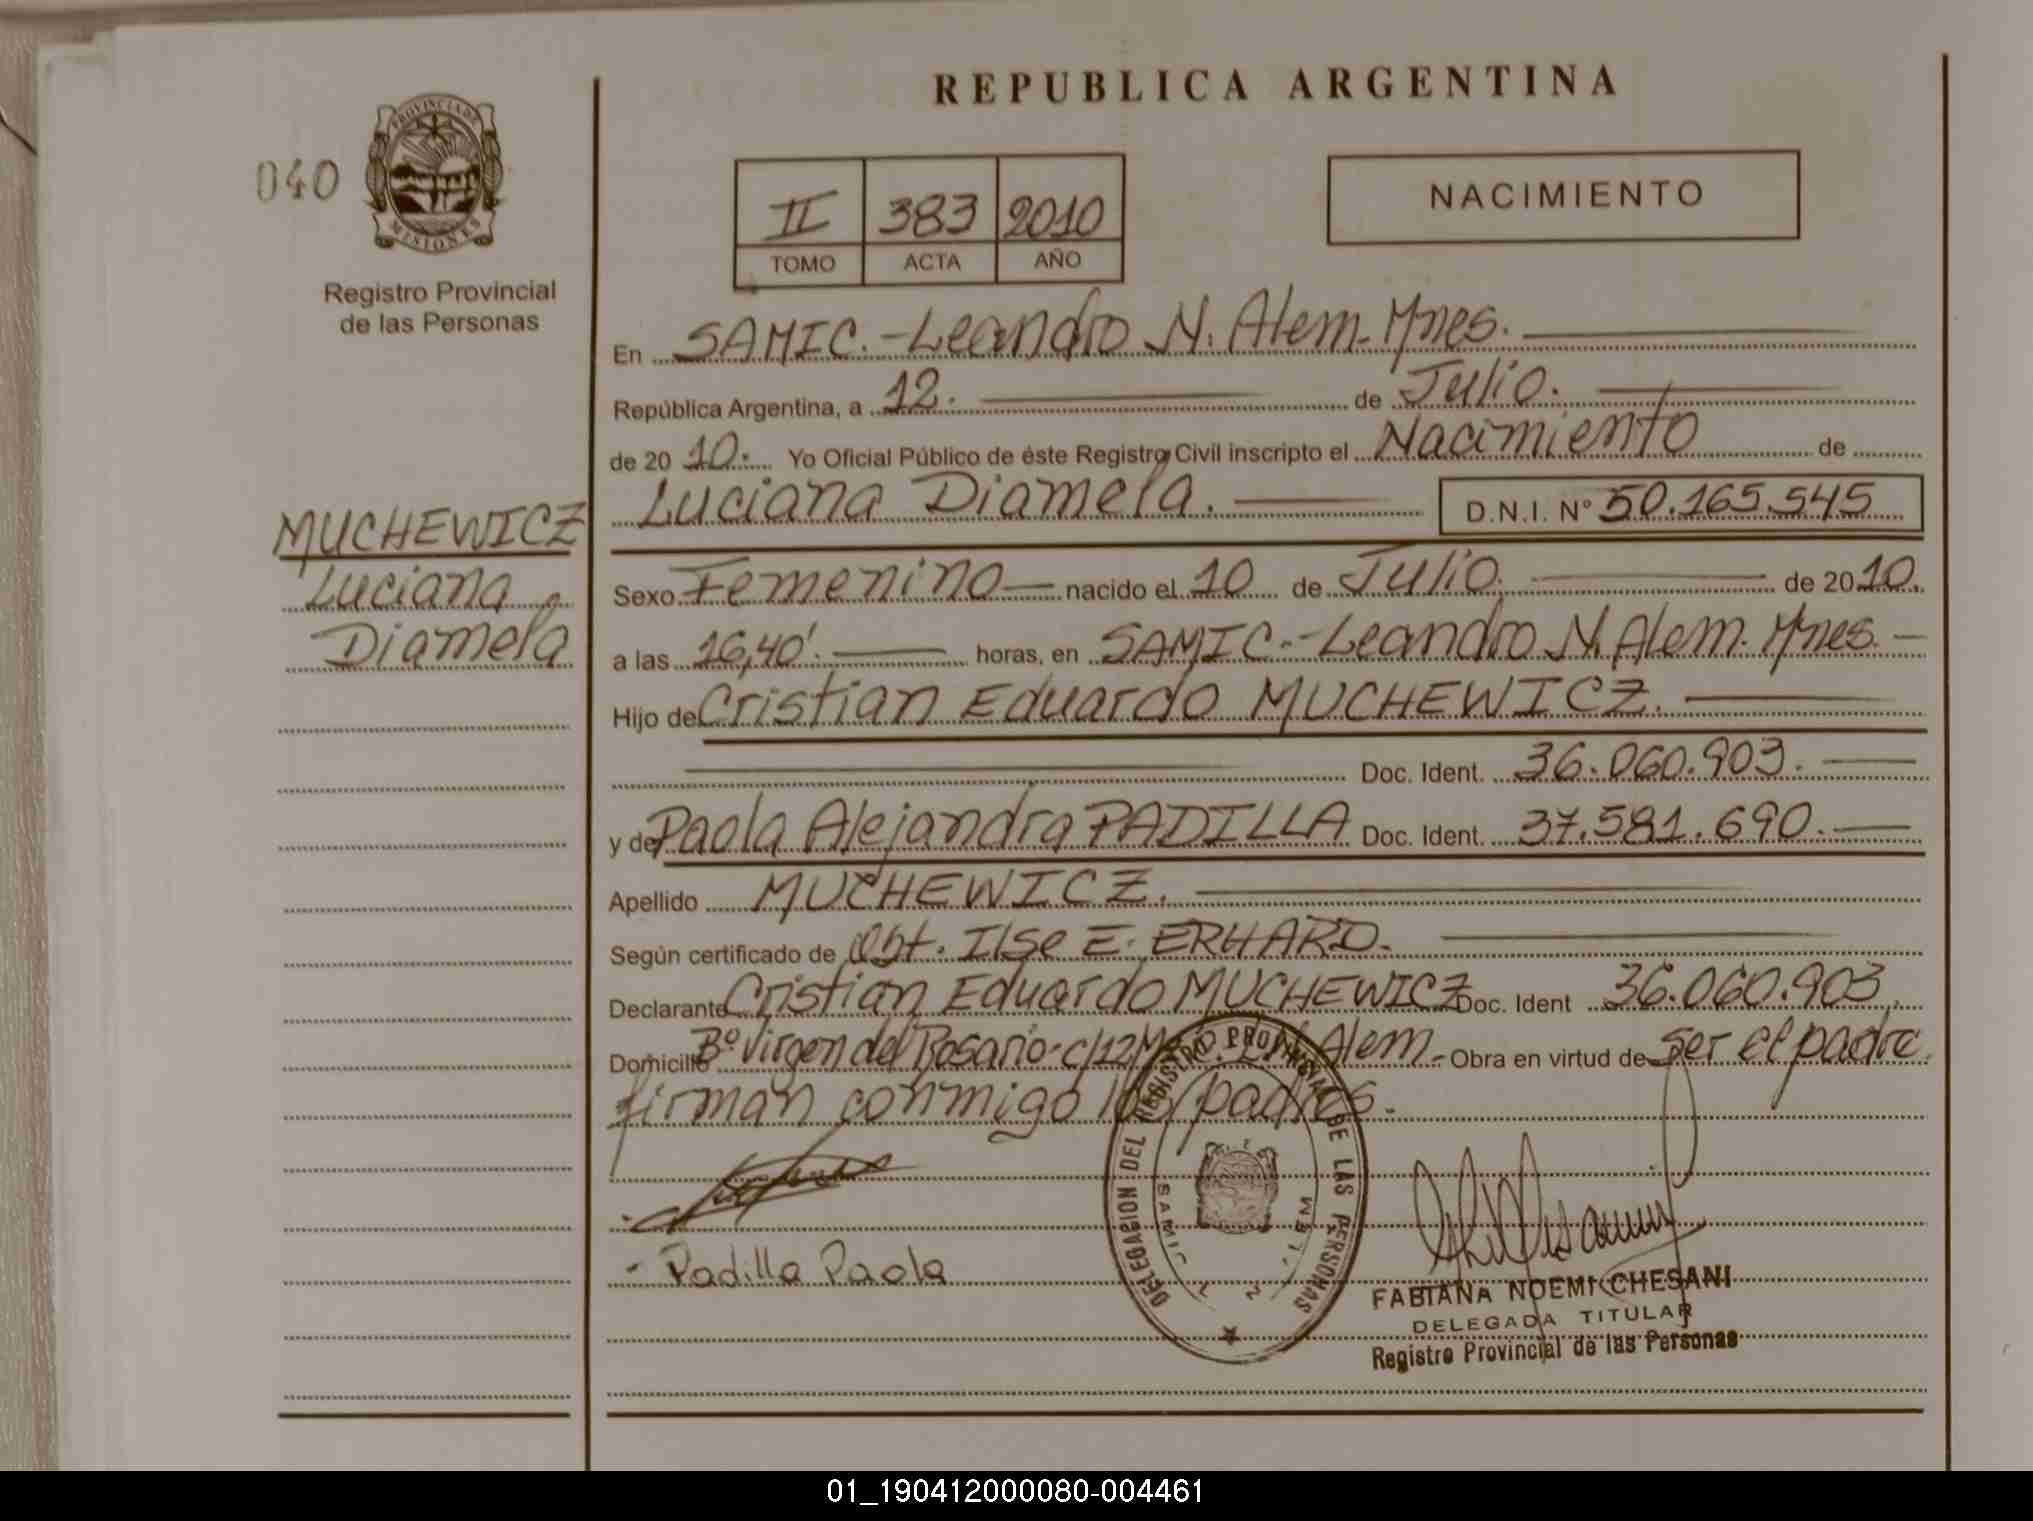 REPUBLICA ARGENTINA
040
PROVINCIA DE
MISIONES
Registro Provincial
de las Personas
II 383 2010
TOMO ACTA AÑO
NACIMIENTO
En SAMIC.-Leandro N. Alem-Mnes.
República Argentina, a 12. de Julio.
de 20 10. Yo Oficial Público de éste Registro Civil inscripto el Nacimiento de
Luciana Diamela. D.N.I. Nº 50.165.545
MUCHEWICZ
Luciana
Diamela
Sexo Femenino nacido el 10 de Julio. de 20 10.
a las 16,40'. horas, en SAMIC.-Leandro N. Alem. Mnes.
Hijo de Cristian Eduardo MUCHEWICZ.
Doc. Ident. 36.060.903.
y de Paola Alejandra PADILLA Doc. Ident. 37.581.690.
Apellido MUCHEWICZ.
Según certificado de Obt. Ilse E. ERHARD.
Declarante Cristian Eduardo MUCHEWICZ Doc. Ident 36.060.903.
Domicilio Bº Virgen del Rosario-c/12 Alem. Obra en virtud de ser el padre
firman conmigo los padres.
Padilla Paola
DELEGACION DEL REGISTRO PROVINCIAL DE LAS PERSONAS
SAMIC L. N. ALEM
FABIANA NOEMI CHESANI
DELEGADA TITULAR
Registro Provincial de las Personas
01_190412000080-004461